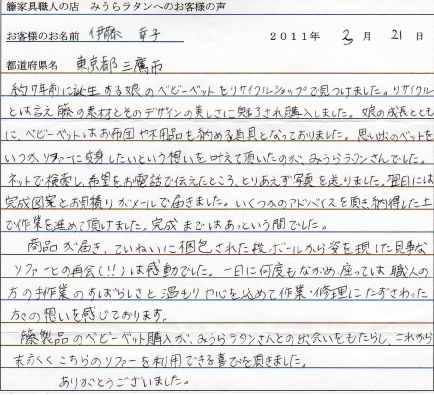 籐家具職人の店　みうらラタンへのお客様の声
お客様のお名前　伊藤 幸子　2011年 3月 21日
都道府県名　東京都三鷹市
約7年前に誕生する娘のベビーベットをリサイクルショップで見つけました。リサイクル
とは言え籐の素材とそのデザインの美しさに魅了され購入しました。娘の成長ととも
に、ベビーベットはお布団や不用品を納める道具となっておりました。思い出のベットを
いつかソファーに変身したいという想いを叶えて頂いたのが、みうらラタンさんでした。
ネットで検索し、希望をお電話で伝えたところ、とりあえず写真を送りました。翌日には
完成図案とお見積りがメールで届きました。いくつかのアドバイスを頂き納得した上
で作業を進めて頂けました。完成まではあっという間でした。
商品が届き、ていねいに梱包された段ボールから姿を現した見事な
ソファーとの再会(!!)は感動でした。一日に何度もながめ、座っては職人の
方の手作業のすばらしさと温もりや心を込めて作業・修理にたずさわった
方々の想いを感じております。
籐製品のベビーベット購入が、みうらラタンさんとの出会いをもたらし、これから
末永くこちらのソファーを利用できる喜びを頂きました。
ありがとうございました。